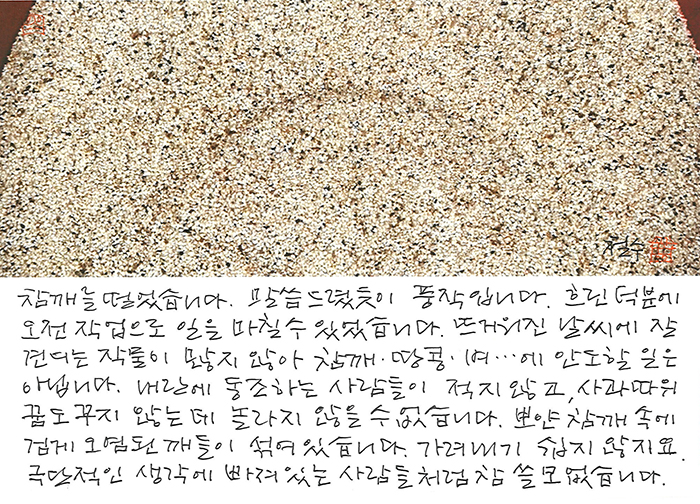 철수
참깨를 떨었습니다. 말씀드렸듯이 풍작입니다. 흐린 덕분에
오전 작업으로 일을 마칠 수 있었습니다. 뜨거워진 날씨에 잘
견디는 작물이 많지 않아 참깨·땅콩·벼…에 안도할 일은
아닙니다. 내란에 동조하는 사람들이 적지 않고, 사과따위
꿈도 꾸지 않는데 놀라지 않을 수 없습니다. 뽀얀 참깨 속에
검게 오염된 깨들이 섞여있습니다. 가려내기 쉽지 않지요.
극단적인 생각에 빠져있는 사람들처럼 참 쓸모없습니다.